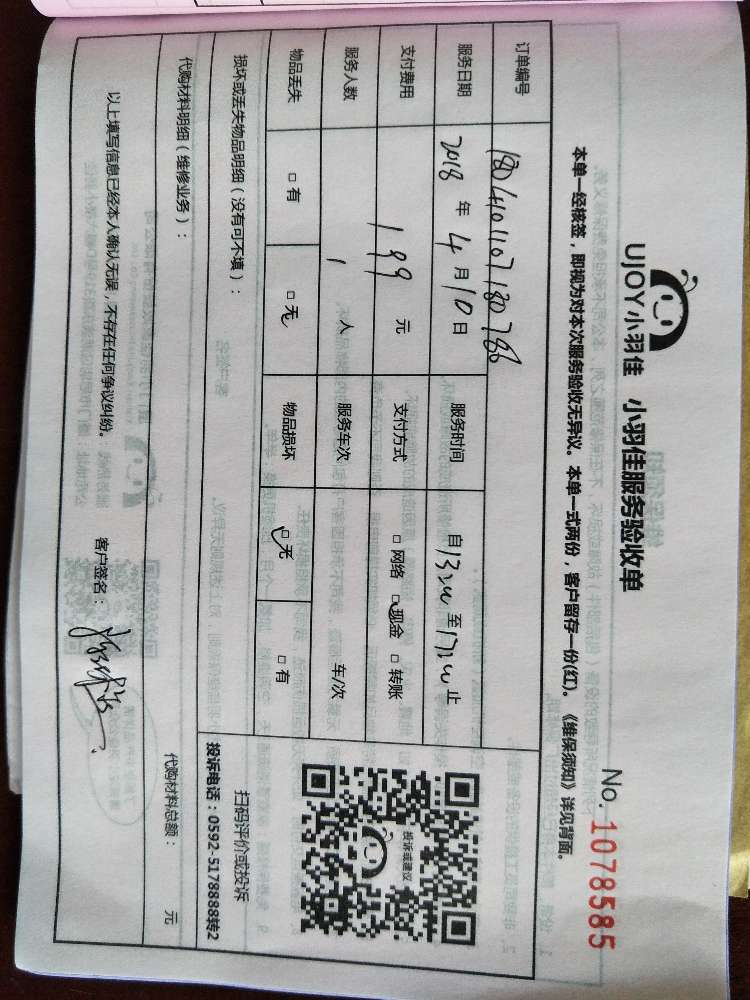 UJOY小羽佳 小羽佳服务验收单
No. 1078585
本单一经核签，即视为对本次服务验收无异议。本单一式两份，客户留存一份(红)。《维保须知》详见背面。
订单编号 1804101107180788
服务日期 2018 年 4 月 10 日 服务时间 自 13:00 至 17:00 止
支付费用 199 元 支付方式 □ 网络 □ 现金 □ 转账
服务人数 1 人 服务车次 车/次
物品丢失 □ 有 □ 无 物品损坏 □ 无 □ 有
投诉或建议
扫码评价或投诉
投诉电话：0592-5178888转2
损坏或丢失物品明细（没有可不填）：
代购材料明细（维修业务）：
代购材料总额： 元
以上填写信息已经本人确认无误，不存在任何争议纠纷。 客户签名：